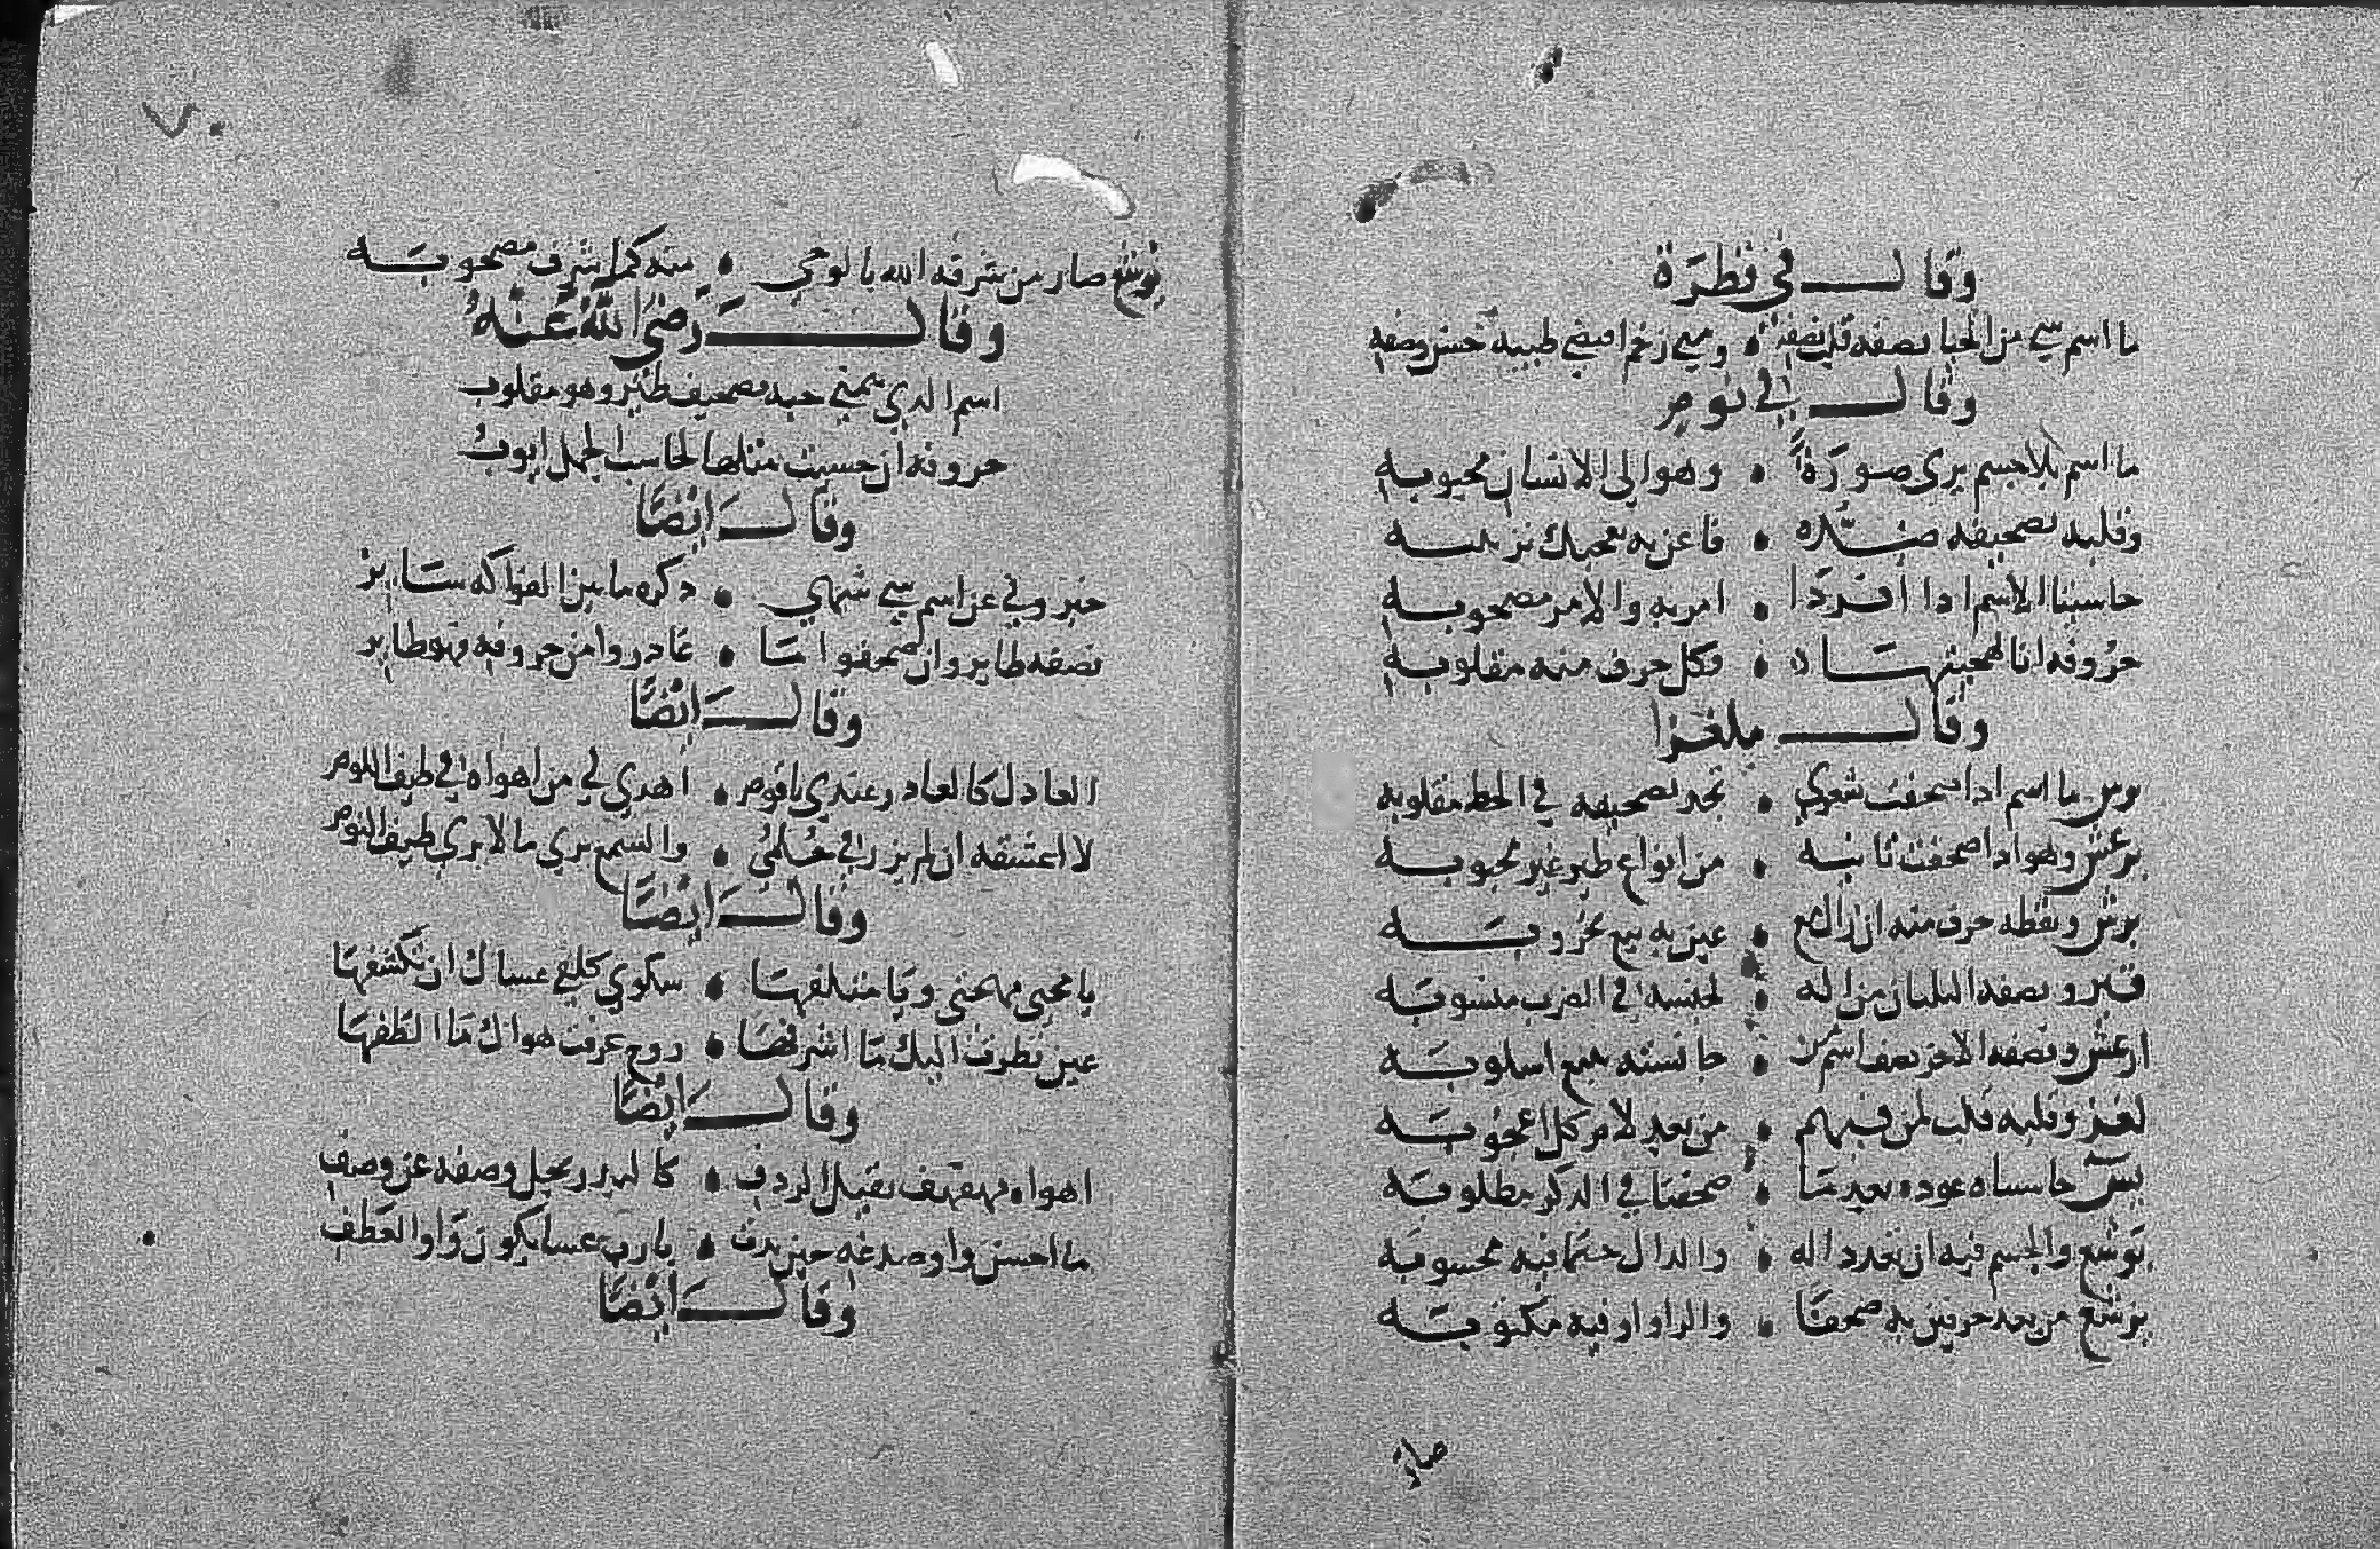 وقال في قطرة
ما اسم شي من الحيا نصفه قلب نصفه ومتى رخم اقتضى طيبه حسن وصفه
وقال في نوم
ما اسم بلا جسم يرى صورة وهو الى الانسان محبوبه
وقلبه تصحيفه ضده فاعن به يعجبك ترتيبه
حاسبنا الاسم اذا افردا امر به والامر مصحوبه
حروفه انا تهجيتها وكل حرف منه مقلوبه
وقال ملغزا
ما اسم اذا صحفت شعري تجد تصحيفه في الخط مقلوبه
وهو اذا صحفت ثانيه من انواع طير غير محبوبه
ونقطه حرف منه ان زال مع عين به بيع بخروبه
ونصفه الثلثان من اله لجنسه في الضرب منسوبه
ونصفه الاخر نصف اسم من جانسته يتبع اسلوبه
وقلبه قلب لمن فيهم من بعد لام كل اعجوبه
حاشاه عوده بعد ما صحفنا في الذكر مطلوبه
والجسم فيه ان يعدد اله والدال حتما فيه محسوبه
من بعد حرفين به صحفا والراو او فيه مكتوبه
صار
صار من شرفه الله بالوحي منه كما يشرف مصحوبه
وقال رضي الله عنه
اسم الذي تيمني حبه تصحيف طير وهو مقلوب
حروفه ان حسبت مثلها لحاسب الجمل ايوب
وقال ايضا
خبروني عن اسم شي شهي ذكره ما بين الفواكه ساير
نصفه طاير وان صحفوا ما غادروا من حروفه فهو طاير
وقال ايضا
العاذل كالعاذر عندي يا قوم اهدى لي من اهواه في طيف اللوم
لا اعتقه ان لم يزر في حلمي والسمع يرى ما لا يرى طيف النوم
وقال ايضا
يا محيي مهجتي ويا متلفها شكوى كلفي عساك ان تكشفها
عين نظرت اليك ما اشرفها روح عرفت هواك ما الطفها
وقال ايضا
اهواه مهفهف ثقيل الردف كالبدر يجل وصفه عن وصف
ما احسن واو صدغه حين بدت يا رب عسا يكون واو العطف
وقال ايضا